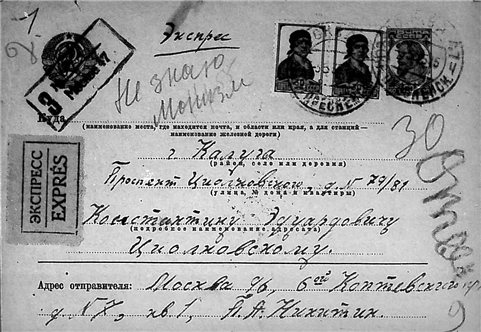 Экспрес
Не знаю
Монизм
З Москва 47
Куда
(наименование места, где находится почта, и области или края, а для станций —
наименование железной дороги)
г. Калуга
(район, село или деревня)
Проспект Циолковского, д. N 79/81
(улица, № дома и квартиры)
ЭКСПРЕСС
EXPRÈS
30
Константину Эдуардовичу
(подробное наименование адресата)
Циолковскому.
Адрес отправителя: Москва 8/б, 6ой Коптевский
д. N 7, кв. 1, П. А. Никитин.